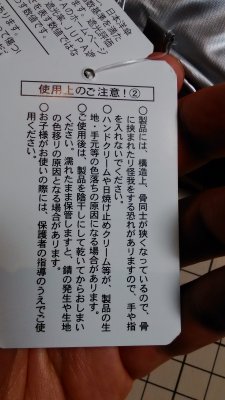 使用上のご注意!②
○製品には、構造上、骨同士が狭くなっているので、骨
に挟まれたり怪我をする恐れがありますので、手や指
を入れないでください。
○ハンドクリームや日焼け止めクリーム等が、製品の生
地・手元等の色落ちの原因になる場合があります。
○ご使用後は、製品を陰干しにして乾いてからおしまい
ください。濡れたまま保管しますと、錆の発生や生地
の色移りの原因となる場合があります。
○お子様がお使いの際には、保護者の指導のうえでご使
用ください。